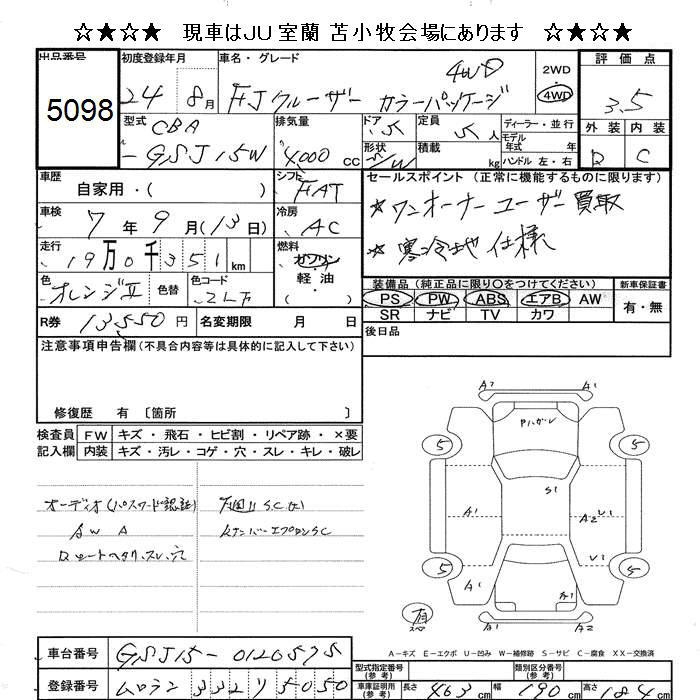 ☆★☆★ 現車はJU室蘭 苫小牧会場にあります ☆★☆★
出品番号 初度登録年月 車名・グレード 評価点
5098 24 8月 FJクルーザー カラーパッケージ 4WD 2WD・4WD 3.5
型式 CBA 排気量 ドア 定員 ディーラー・並行 外装 内装
-GSJ15W 4000cc 5 5人 モデル年式 年 C
形状 S/W 積載 kg ハンドル 左・右
車歴 自家用・( ) シフト FAT セールスポイント (正常に機能するものに限ります)
車検 7年9月(13日) 冷房 AC ★ワンオーナーユーザー買取
走行 19万0千351km 燃料 ガソリン・軽油・( ) ★寒冷地仕様
色 オレンジII 色替 色コード 装備品 (純正品に限り○をつけてください) 新車保証書
PS PW ABS エアB AW 有・無
SR ナビ TV カワ
R券 13550円 名変期限 月 日 後日品
注意事項申告欄(不具合内容等は具体的に記入して下さい)
修復歴 有 〔箇所 〕
検査員 FW キズ・飛石・ヒビ割・リペア跡・×要
記入欄 内装 キズ・汚レ・コゲ・穴・スレ・キレ・破レ
オーディオ(パスワード認証)
AW A
シートヘタリ、スレ、穴
下回りS.C(大)
ナンバーエプロンSC
A2 A1
Pハガレ
5 5
S1
A1 A2 U1
V1
5 5
A1 A1
有
スペ
A1 A2
A-キズ E-エクボ U-凹み W-補修跡 S-サビ C-腐食 XX-交換済
車台番号 GSJ15-0120575
型式指定番号(参考) 類別区分番号(参考)
登録番号 ムロラン 332 リ 5050
車庫証明用(参考) 長さ 463cm 幅 190cm 高さ 184cm